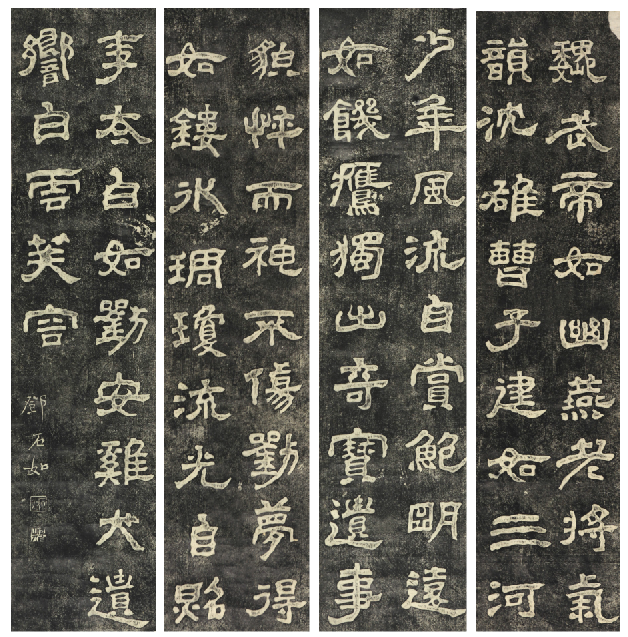 魏武帝如幽燕老将氣
韻沈雄曹子建如三河
少年風流自賞鮑明遠
如饑鷹獨出奇寶遺事
貌悴而神不傷劉夢得
如鏤冰琱瓊流光自照
李太白如劉安雞犬遺
響白雲芙容
鄧石如